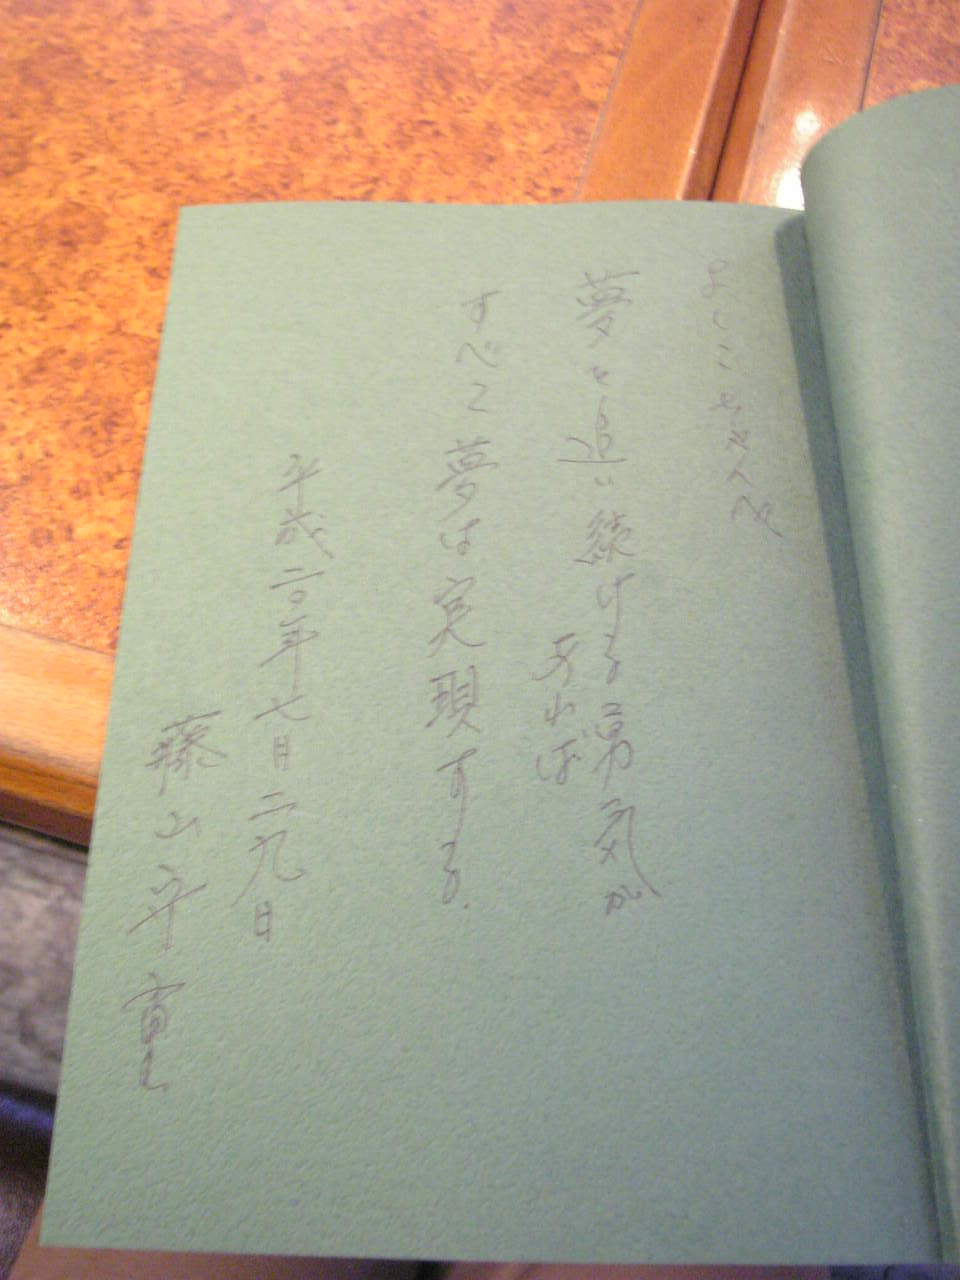 よしこちゃんへ
夢を追い続ける勇気が
有れば
すべて夢は実現する.
平成二〇年七月二九日